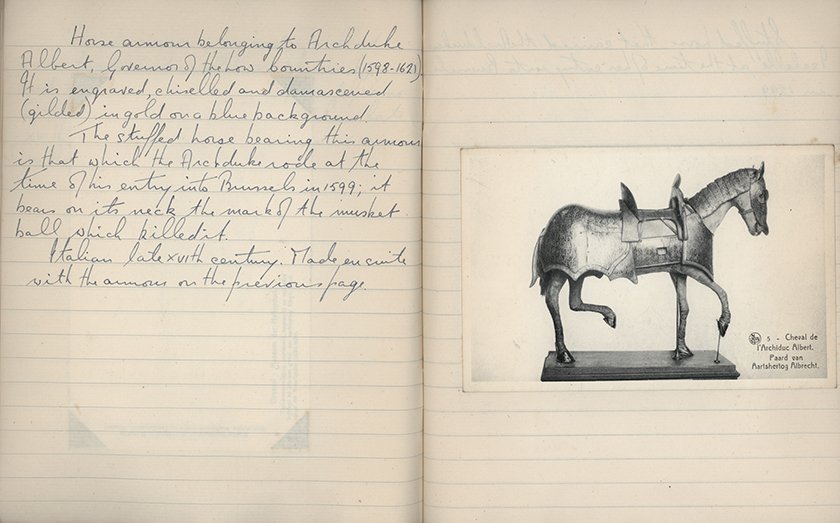 Horse armour belonging to Archduke
Albert, Governor of the Low Countries (1598-1621).
It is engraved, chiselled and damascened
(gilded) in gold on a blue background.
The stuffed horse bearing this armour
is that which the Archduke rode at the
time of his entry into Brussels in 1599; it
bears on its neck the mark of the musket
ball which killed it.
Italian late XVIth century. Made en suite
with the armour on the previous page.
5 - Cheval de
l'Archiduc Albert.
Paard van
Aartshertog Albrecht.